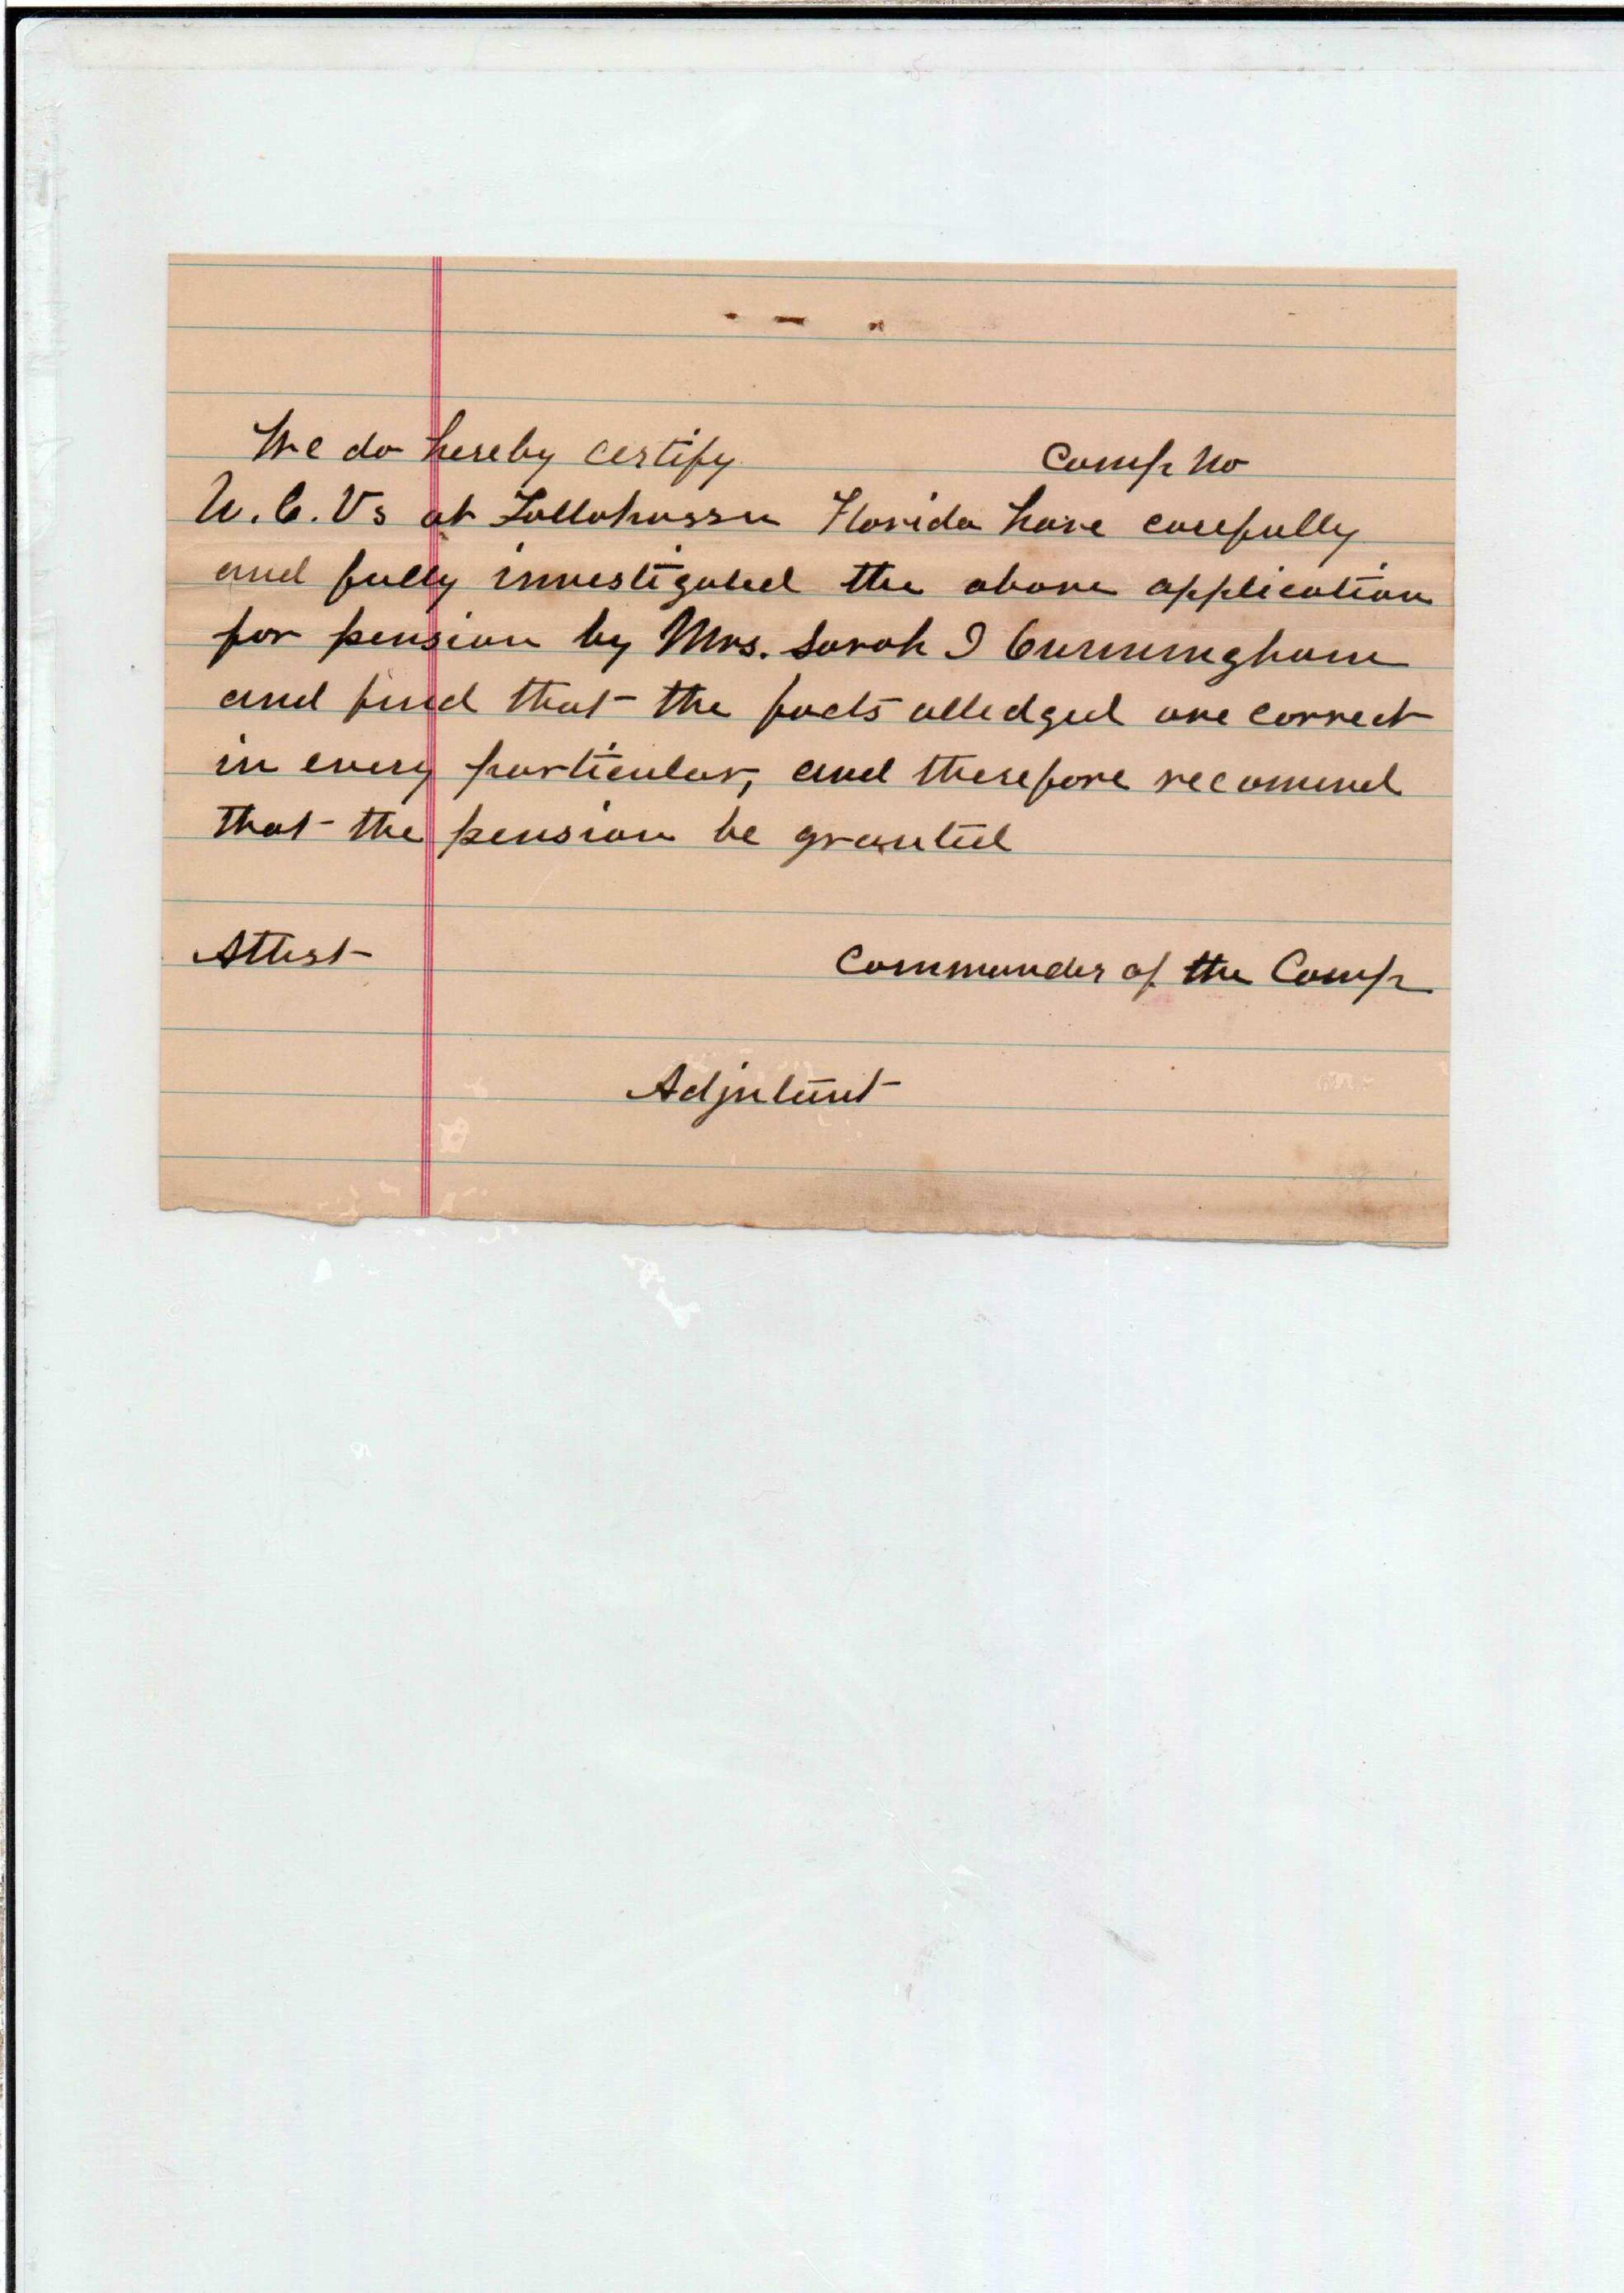 We do hereby certify Camp No
U.C.Vs at Tallahassee Florida have carefully
and fully investigated the above application
for pension by Mrs. Sarah I Cunningham
and find that the facts alledged are correct
in every particular, and therefore recomend
that the pension be granted
Attest Commander of the Camp
Adjutant